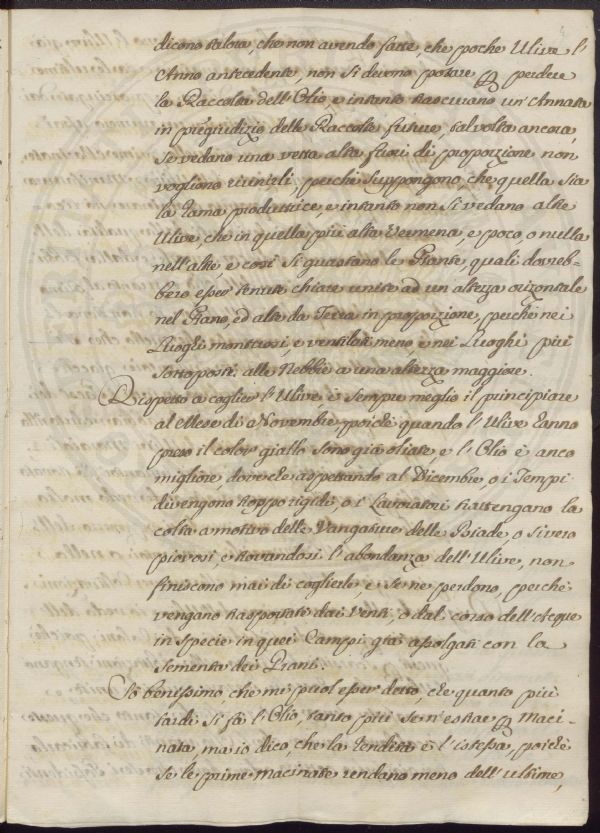 dicono talora, che non avendo fatte, che poche Ulive l'
Anno antecedente, non si devono potare p perdere
la Raccolta dell'Olio, e intanto trascurano un'Annata
in pregiudizio delle Raccolte future, talvolta ancora,
se vedano una vetta alta fuori di proporzione non
vogliono riunirli, perche suppongono, che quella sia
la rama produttrice, e intanto non si vedano altre
Ulive, che in quella più alta vermena, e poco, o nulla
nell'altre, e così si guastano le Piante, quali dovreb=
bero esser tenute chiare unite ad un altezza orizontale
nel Piano, ed alte da Terra in proporzione, perche nei
Luoghi montuosi, e ventilati meno e nei Luoghi più
sottoposti alle Nebbie a una altezza maggiore.
Rispetto a coglier l'Ulive è sempre meglio il principiare
al Mese di Novembre poiche quando l'Ulive hanno
preso il color giallo sono già oliate e l'Olio è anco
migliore, doveche aspettando al Dicembre, o i Tempi
divengono troppo rigidi, o i Lavoratori trattengano la
colta a motivo delle Vangature delle Biade, o si vero
piovosi, e trovandosi l'abondanza dell'Ulive, non
finiscono mai di coglierle, e se ne perdono, perche
vengano trasportate dai Venti, o dal corso dell'Acque
in specie in quei Campi già assolgati con la
sementa dei Grani.
So benissimo, che mi puol esser detto, che quanto più
tardi si fà l'Olio, tanto più se n'estrae p Maci=
nata, ma io dico, che la rendita è l'istessa, poiche
se le prime macinate rendano meno dell'ultime,